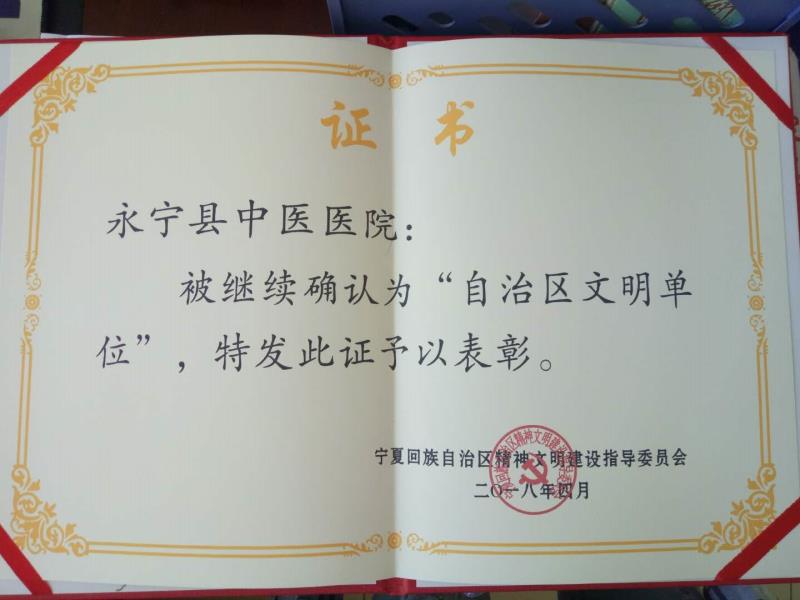 证书
永宁县中医医院：
被继续确认为“自治区文明单
位”，特发此证予以表彰。
宁夏回族自治区精神文明建设指导委员会
二〇一八年四月